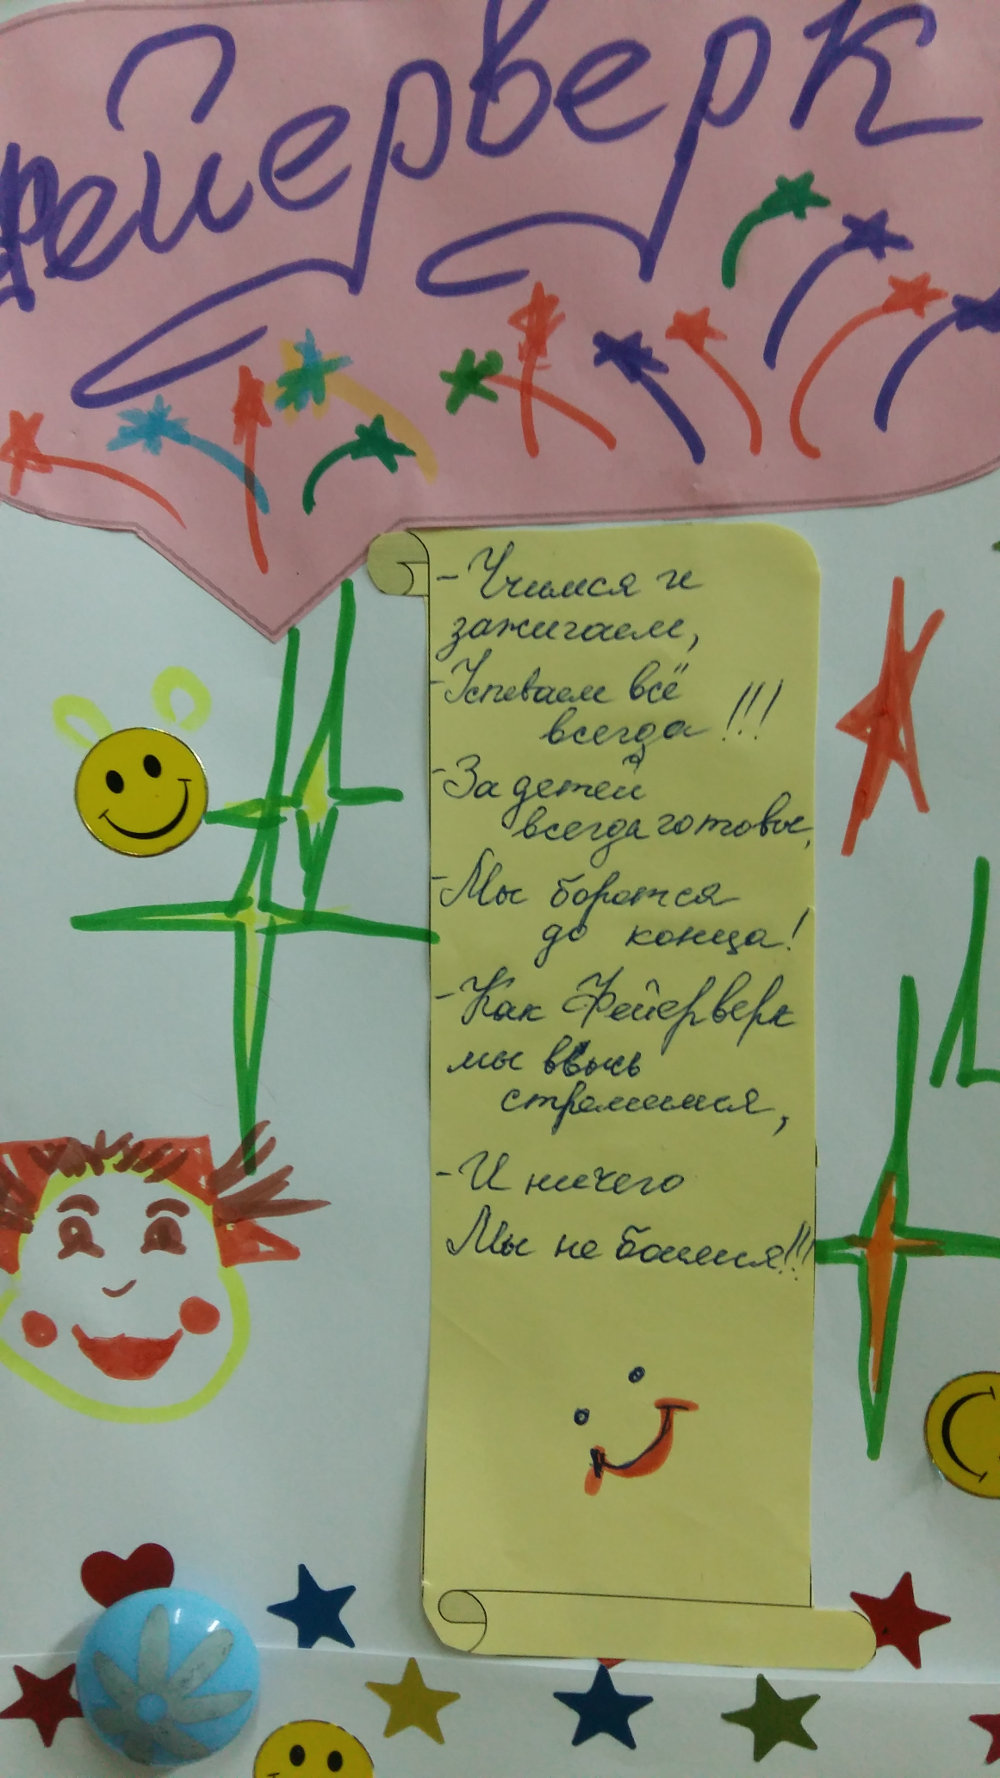 Фейерверк
- Учимся и
зажигаем,
- Успеваем всё
всегда !!!
- За детей
всегда готовы,
- Мы боротся
до конца!
- Как Фейерверк
мы ввысь
стремимся,
- И ничего
Мы не боимся!!!